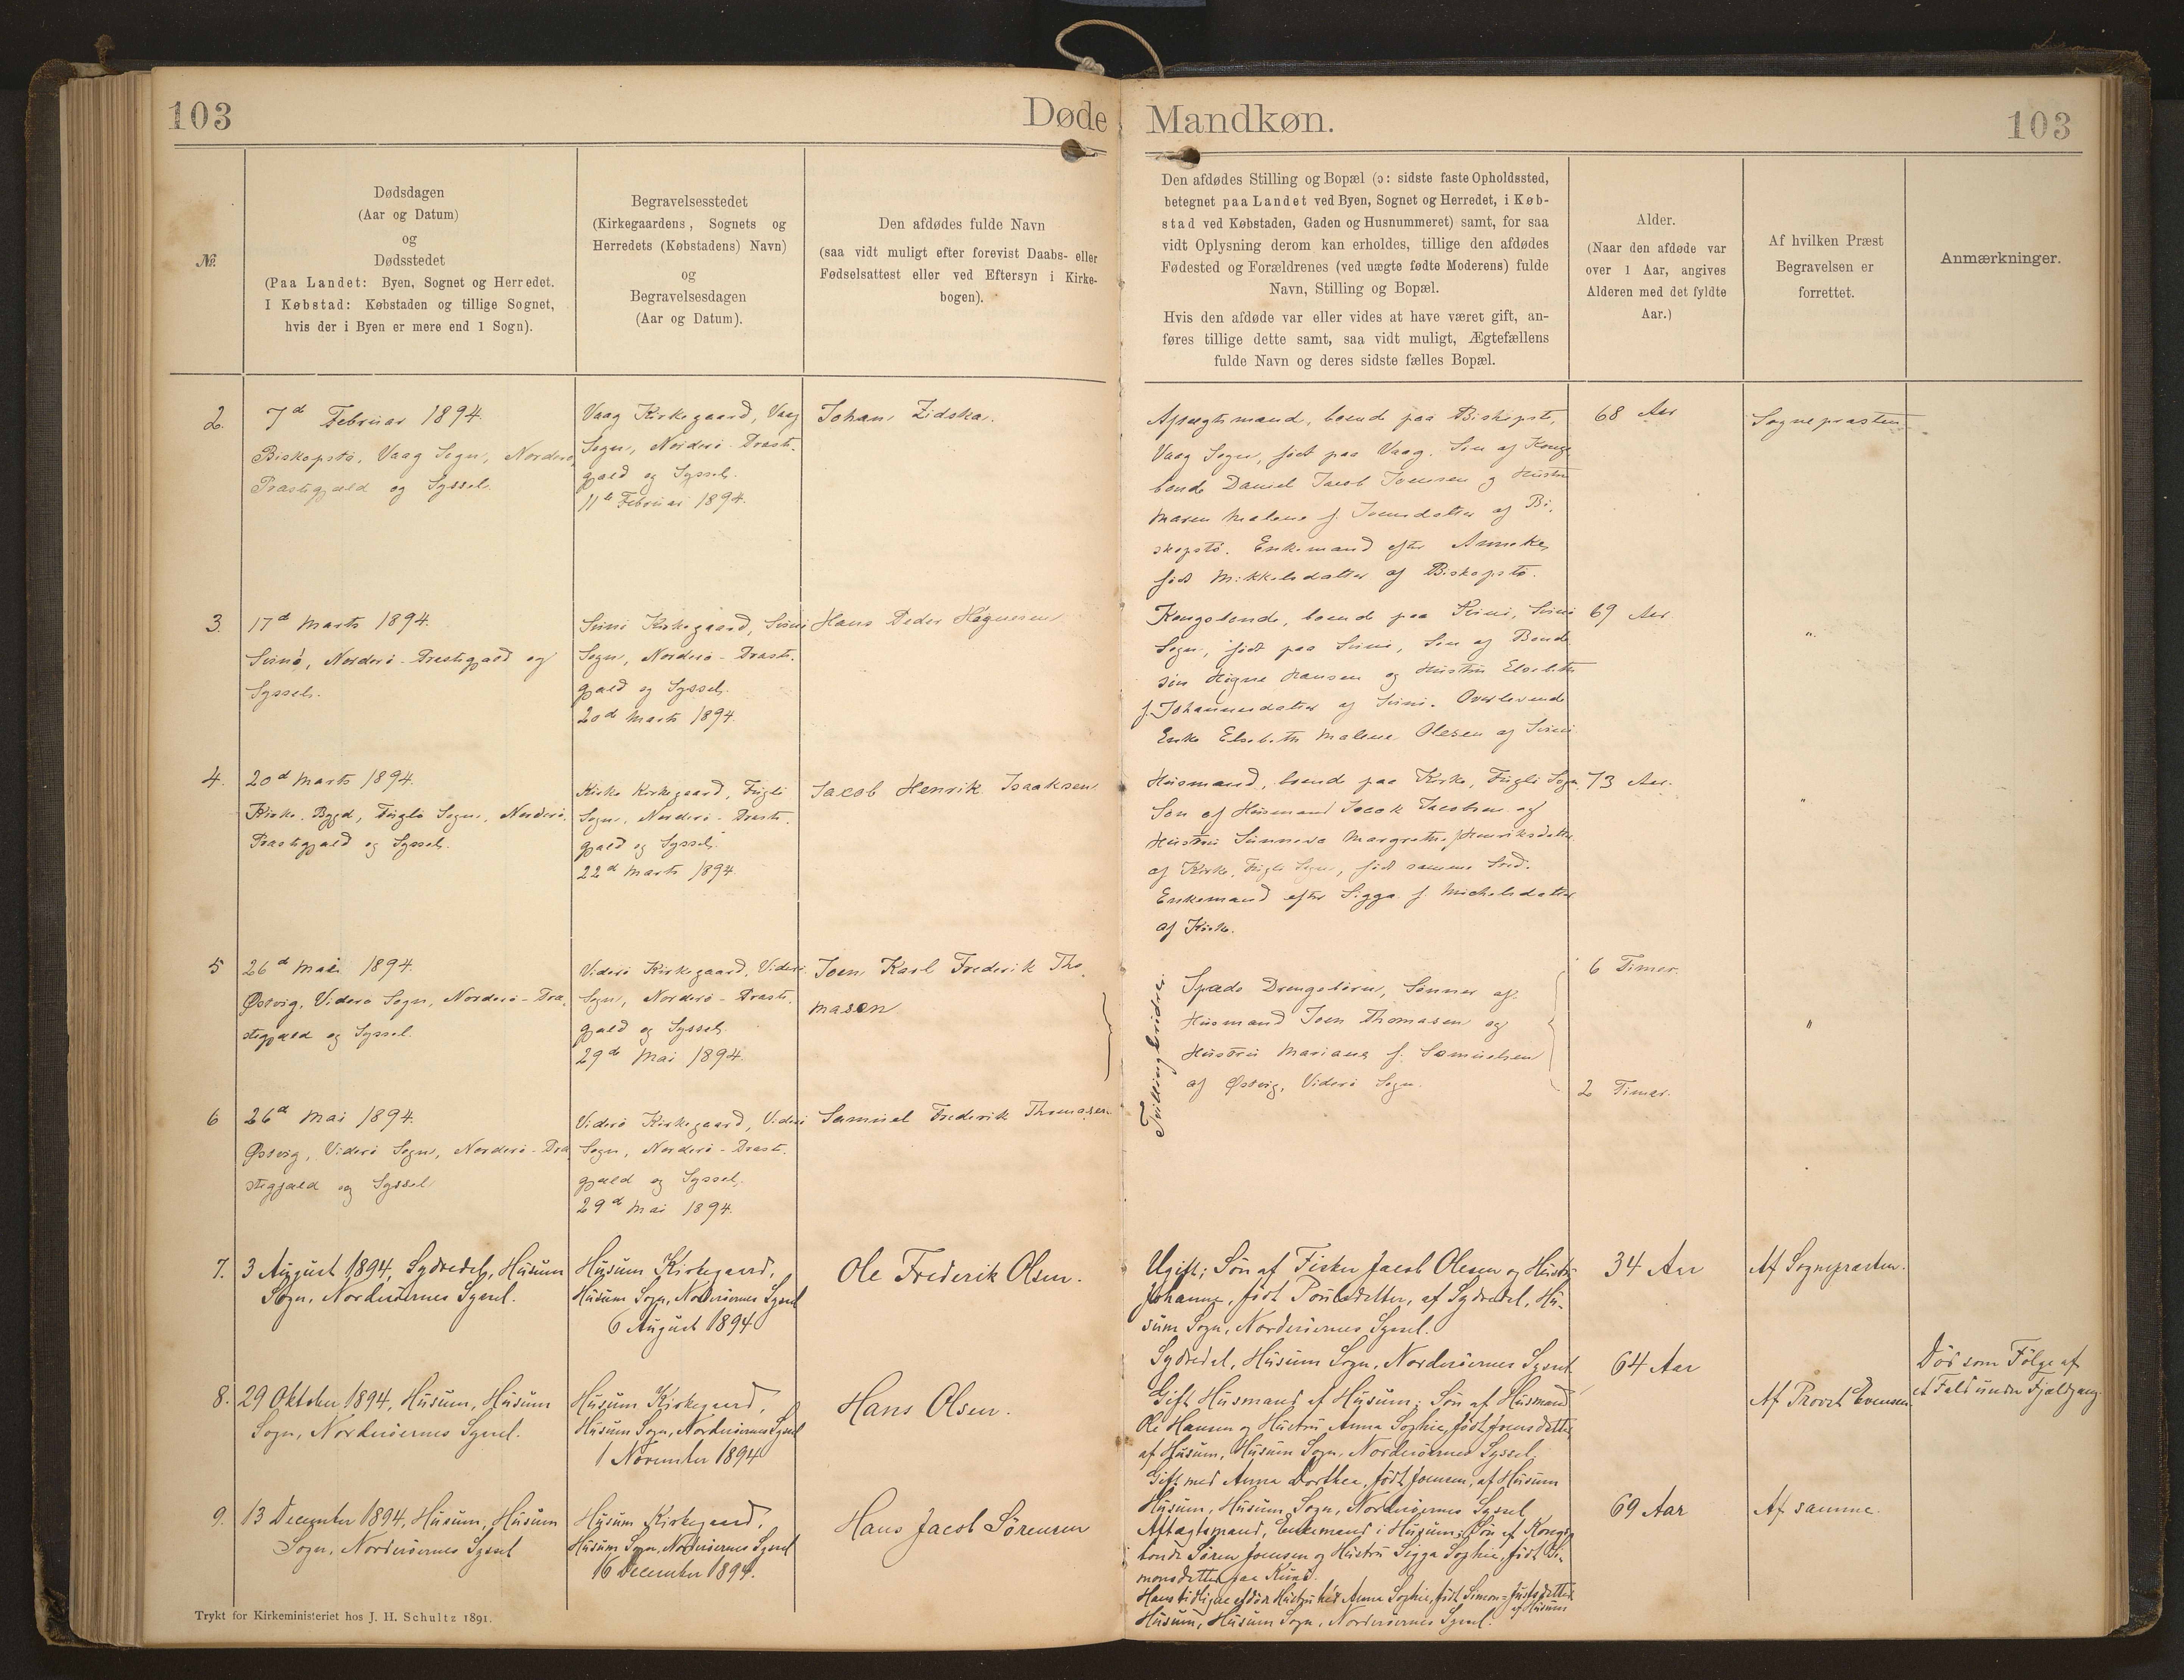 103
Døde
Mandkøn.
103
№
Dødsdagen
(Aar og Datum)
og
Dødsstedet
(Paa Landet: Byen, Sognet og Herredet.
I Købstad: Købstaden og tillige Sognet,
hvis der i Byen er mere end 1 Sogn).
Begravelsesstedet
(Kirkegaardens, Sognets og
Herredets (Købstadens) Navn)
og
Begravelsesdagen
(Aar og Datum).
Den afdødes fulde Navn
(saa vidt muligt efter forevist Daabs- eller
Fødselsattest eller ved Eftersyn i Kirke-
bogen).
Den afdødes Stilling og Bopæl (ɔ: sidste faste Opholdssted,
betegnet paa Landet ved Byen, Sognet og Herredet, i Køb-
stad ved Købstaden, Gaden og Husnummeret) samt, for saa
vidt Oplysning derom kan erholdes, tillige den afdødes
Fødested og Forældrenes (ved uægte fødte Moderens) fulde
Navn, Stilling og Bopæl.
Hvis den afdøde var eller vides at have været gift, an-
føres tillige dette samt, saa vidt muligt, Ægtefællens
fulde Navn og deres sidste fælles Bopæl.
Alder.
(Naar den afdøde var
over 1 Aar, angives
Alderen med det fyldte
Aar.)
Af hvilken Præst
Begravelsen er
forrettet.
Anmærkninger.
2.
7d Februar 1894.
Biskopstö, Vaag Sogn, Norderö
Præstegjæld og Syssel.
Vaag Kirkegaard, Vaag
Sogn, Norderö-Præste-
gjæld og Syssel.
11te Februar 1894.
Johan Zidska.
Aftægtsmand, boende paa Biskopstö,
Vaag Sogn, født paa Vaag. Søn af Konge
bonde Daniel Jacob Joensen og Hustru
Maren Malene f. Joensdatter af Bi-
skopstö. Enkemand efter Anneke,
født Mikkelsdatter af Biskopstö.
68 Aar
Sognepræsten
3.
17d Marts 1894.
Svinö, Norderö-Præstegjæld og
Syssel.
Svinö Kirkegaard, Svinö
Sogn, Norderö-Præste-
gjæld og Syssel.
20d Marts 1894.
Hans Peder Högnesen
Kongsbonde, boende paa Svinö, Svinö
Sogn, født paa Svinö, Søn af Bonde
Högne Hansen og Hustru Elsebeth
f. Johannesdatter af Svinö. Overlevende
Enke Elsebeth Malene Olesen af Svinö
69 Aar
"
4.
20d Marts 1894.
Kirke Bygd, Fuglö Sogn, Norderö
Præstegjæld og Syssel.
Kirke Kirkegaard, Fuglö
Sogn, Norderö-Præste-
gjæld og Syssel.
22d Marts 1894.
Jacob Henrik Isaaksen
Husmand, boende paa Kirke, Fuglö Sogn.
Søn af Husmand Isaak Jacobsen og
Hustru Sunneva Margrethe f. Henriksdatter
af Kirke, Fuglö Sogn, født samme Sted.
Enkemand efter Sigga f. Michelsdatter
af Kirke.
73 Aar.
"
5
26d Mai 1894.
Østvig, Viderö Sogn, Norderö-Præ-
stegjæld og Syssel.
Viderö Kirkegaard, Viderö
Sogn, Norderö-Præste-
gjæld og Syssel
29d Mai 1894.
Joen Karl Frederik Tho-
masen
Tvillingbrødre
Spæde Drengebørn, Sønner af
Husmand Joen Thomasen og
Hustru Mariana f. Samuelsen
af Østvig, Viderö Sogn.
6 Timer.
"
2 Timer.
6
26d Mai 1894.
Østvig, Viderö Sogn, Norderö-Præ
stegjæld og Syssel
Viderö Kirkegaard, Viderö
Sogn, Norderö-Præste-
gjæld og Syssel.
29d Mai 1894.
Samuel Frederik Thomasen
7.
3 August 1894, Sydredal, Husum
Sogn, Norderöernes Syssel.
Husum Kirkegaard,
Husum Sogn, Norderöernes Syssel
6 August 1894
Ole Frederik Olsen.
Ugift; Søn af Fisker Jacob Olesen og Hustru
Johanne, født Poulsdatter, af Sydredal, Hu-
sum Sogn, Norderöernes Syssel.
Sydredal, Husum Sogn, Norderöernes Syssel.
34 Aar
Af Sognepræsten.
8.
29 Oktober 1894, Husum, Husum
Sogn, Norderöernes Syssel.
Husum Kirkegaard,
Husum Sogn, Norderöernes Syssel
1 November 1894
Hans Olsen.
Gift Husmand af Husum; Søn af Husmand
Ole Hansen og Hustru Anna Sophie, født Joensdatter
af Husum, Husum Sogn, Norderöernes Syssel.
Gift med Anna Dorthea, født Joensen, af Husum
Husum, Husum Sogn, Norderöernes Syssel
64 Aar
Af Provst Evensen.
Død som Følge af
et Fald under Fjældgang.
9.
13 December 1894, Husum, Husum
Sogn, Norderöernes Syssel
Husum Kirkegaard,
Husum Sogn, Norderöernes Syssel
16 December 1894.
Hans Jacob Sörensen
Aftægtsmand, Enkemand i Husum; Søn af Kongs-
bonde Sören Joensen og Hustru Sigga Sophie, født Si-
monsdatter paa Kunö.
Hans tidligere afdøde Hustru hed Anna Sophie, født Simon-Justsdatter
af Husum
Husum, Husum Sogn, Norderöernes Syssel.
69 Aar
Af samme.
Trykt for Kirkeministeriet hos J. H. Schultz 1891.